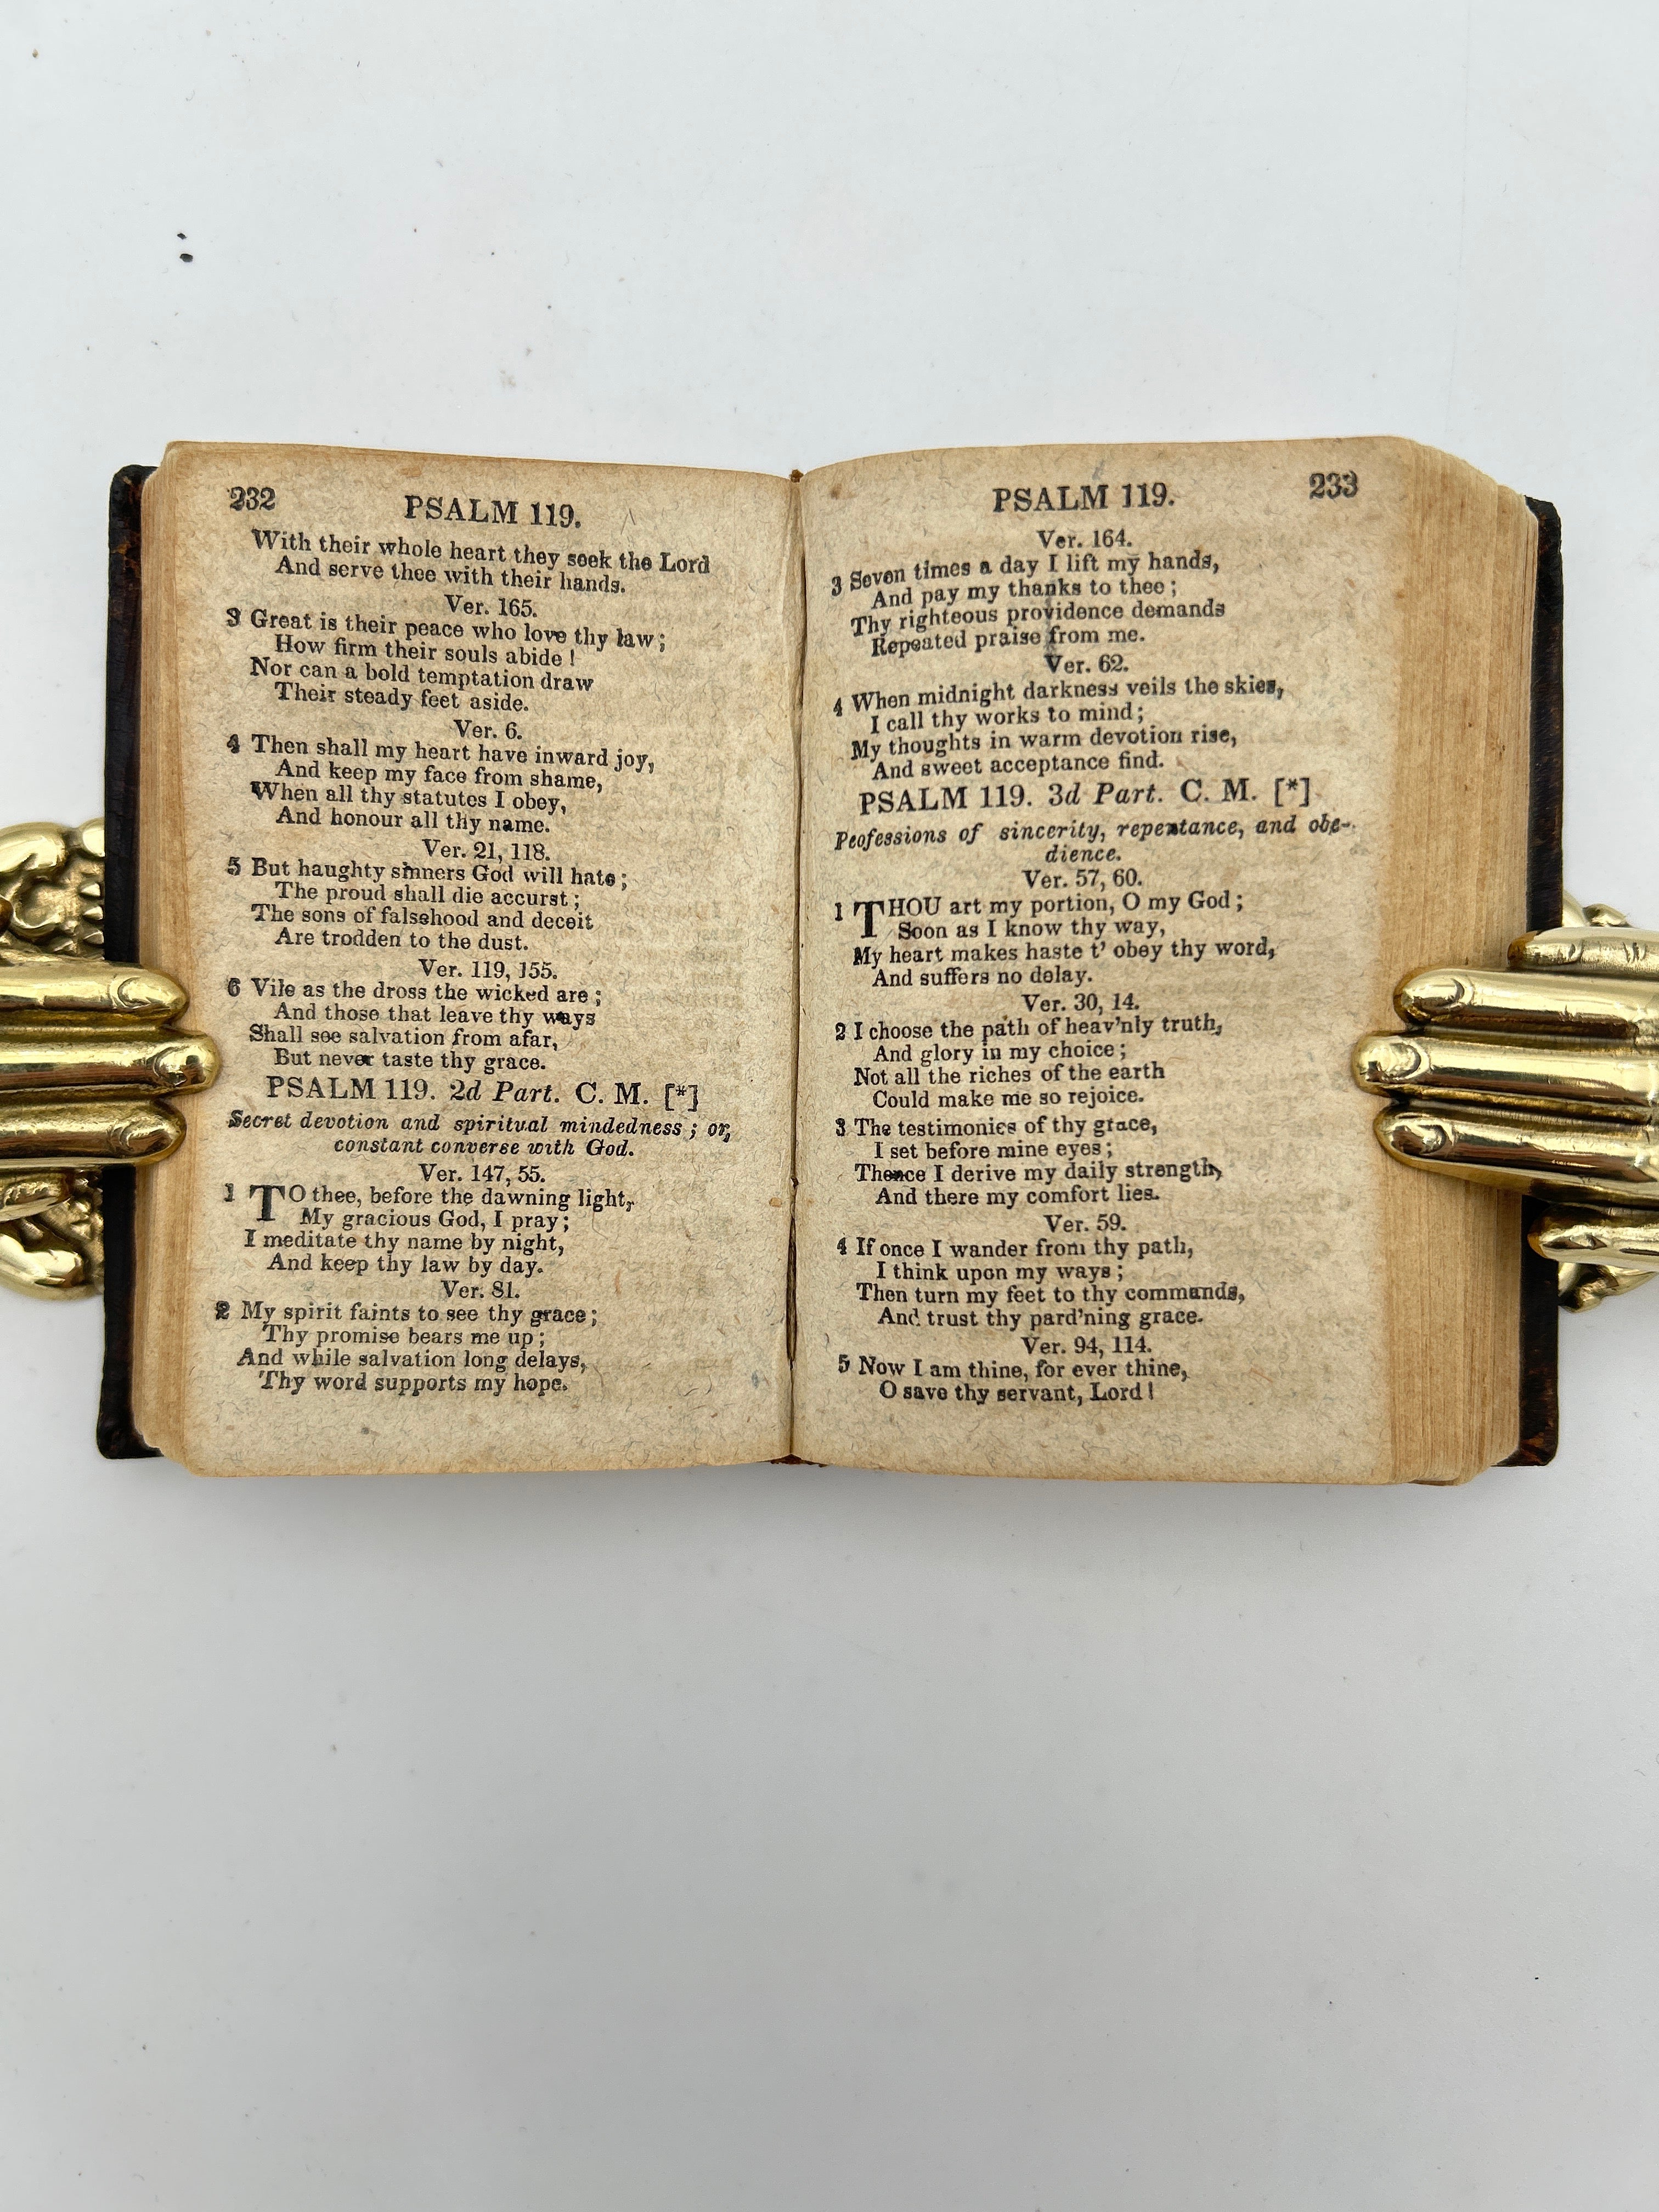 232
PSALM 119.
With their whole heart they seek the Lord
And serve thee with their hands.
Ver. 165.
3 Great is their peace who love thy law;
How firm their souls abide!
Nor can a bold temptation draw
Their steady feet aside.
Ver. 6.
4 Then shall my heart have inward joy,
And keep my face from shame,
When all thy statutes I obey,
And honour all thy name.
Ver. 21, 118.
5 But haughty sinners God will hate;
The proud shall die accurst;
The sons of falsehood and deceit
Are trodden to the dust.
Ver. 119, 155.
6 Vile as the dross the wicked are;
And those that leave thy ways
Shall see salvation from afar,
But never taste thy grace.
PSALM 119. 2d Part. C. M. [*]
Secret devotion and spiritual mindedness; or,
constant converse with God.
Ver. 147, 55.
1 TO thee, before the dawning light,
My gracious God, I pray;
I meditate thy name by night,
And keep thy law by day.
Ver. 81.
2 My spirit faints to see thy grace;
Thy promise bears me up;
And while salvation long delays,
Thy word supports my hope.
PSALM 119.
233
Ver. 164.
3 Seven times a day I lift my hands,
And pay my thanks to thee;
Thy righteous providence demands
Repeated praise from me.
Ver. 62.
4 When midnight darkness veils the skies,
I call thy works to mind;
My thoughts in warm devotion rise,
And sweet acceptance find.
PSALM 119. 3d Part. C. M. [*]
Peofessions of sincerity, repentance, and obe-
dience.
Ver. 57, 60.
1 THOU art my portion, O my God;
Soon as I know thy way,
My heart makes haste t' obey thy word,
And suffers no delay.
Ver. 30, 14.
2 I choose the path of heav'nly truth,
And glory in my choice;
Not all the riches of the earth
Could make me so rejoice.
3 The testimonies of thy grace,
I set before mine eyes;
Thence I derive my daily strength,
And there my comfort lies.
Ver. 59.
4 If once I wander from thy path,
I think upon my ways;
Then turn my feet to thy commands,
And trust thy pard'ning grace.
Ver. 94, 114.
5 Now I am thine, for ever thine,
O save thy servant, Lord!